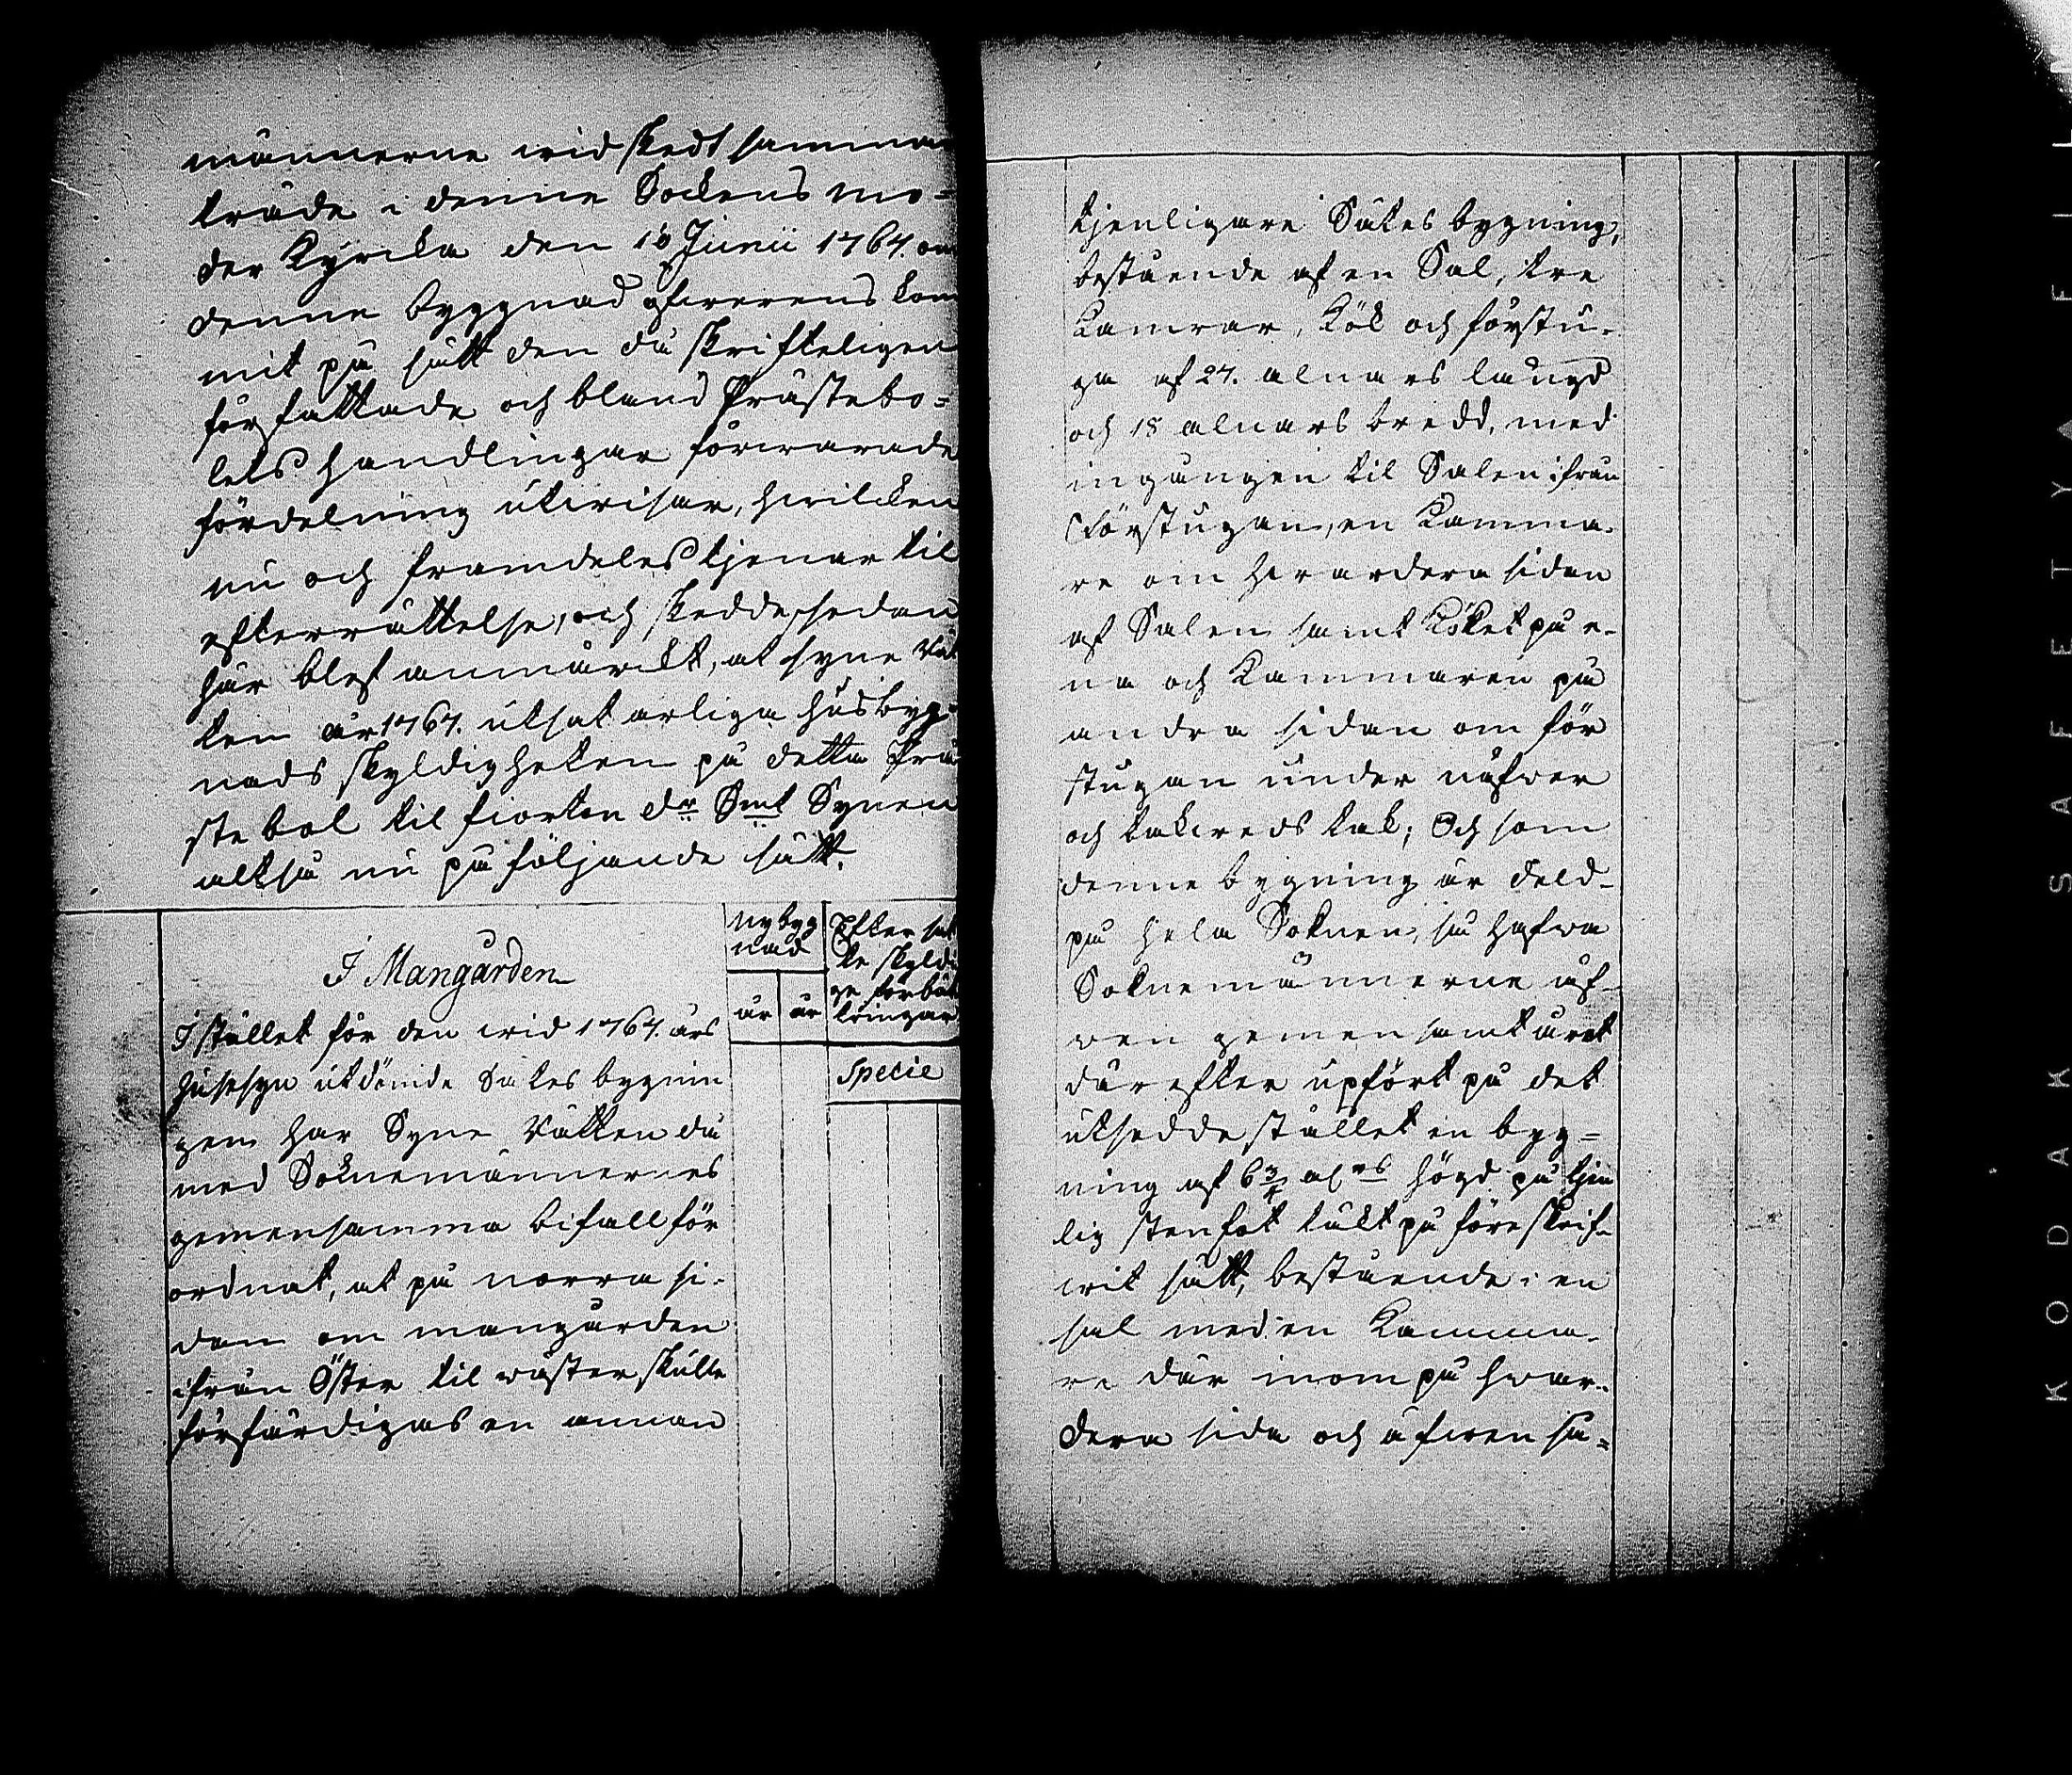 männerne wid skedt samman
träde i denne Sockens mo=
der Kyrcka den 18 Junii 1767. om
denne byggnad öfwerens kom
mit på sätt den då skrifteligen
författade och bland Prästebo=
lets handlingar förwarade
fördelning utwisar, hwilcken
nu och framdeles tjenar til
efterrättelse, och skedde, sedan
här blef anmärckt, at syne Rät
ten år 1767. utsat årliga husbyg=
nads skyldigheten på detta Prä
stebol til fiorton dr Smt Synen
altså nu på följande sätt.
I Mangården
nybyg
nad
år år
Efter sat
te skyldi
ge förbät
tringar
Specie
I stället för den wid 1767. års
husesyn utdömde Sätes bygnin
gen har Syne Rätten då
med Soknemännernes
gemensamma bifall för
ordnat, at på norra si-
dan om mangården
ifrån Öster til wäster skulle
förfärdigas en annan
tjenligare Sätes bygning,
bestående af en Sal, tre
Kamrar, Kök och förstu-
ga af 27. alnars längd
och 18 alnars bredd, med
ingången til Salen ifrån
förstugan, en Kamma-
re om hwardera sidan
af Salen samt Köket på e-
na och Kammaren på
andra sidan om för
stugan under näfwer
och takweds tak; Och som
denne bygning är deld
på hela Soknen, så hafwa
Soknemännerne äf-
wen gemensamt året
där efter upfört på det
utsedde stället en byg=
ning af 6 3/4 alns högd på tjen
lig stenfot täkt på föreskrif-
wit sätt, bestående i en
sal med en Kamma-
re där inom på hwar-
dera sida och äfwen så=
KODAK SAFETY▲FILM